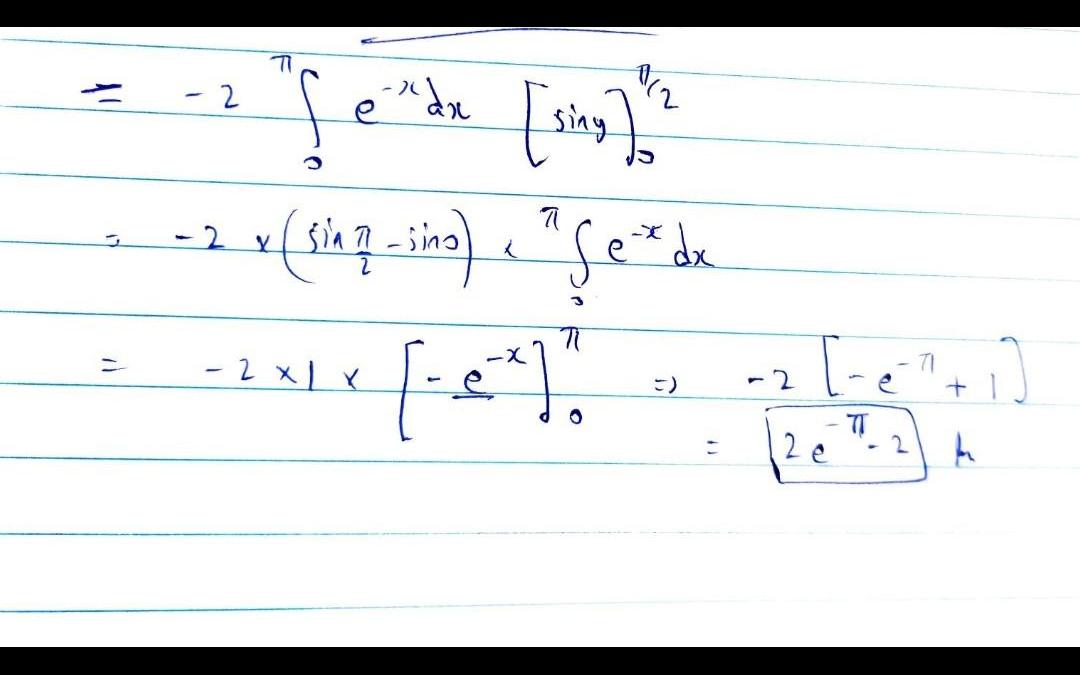 = -2 ∫₀^π e^{-x} dx [sin y]₀^{π/2}
= -2 × (sin π/2 - sin 0) × ∫₀^π e^{-x} dx
= -2 × 1 × [-e^{-x}]₀^π => -2 [-e^{-π} + 1]
= 2e^{-π} - 2